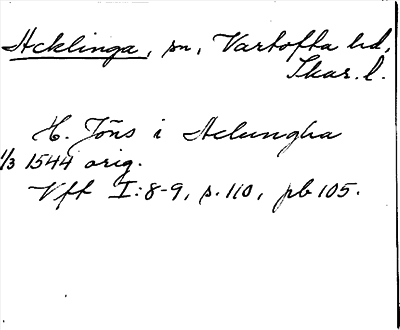 Acklinga, sn, Vartofta hd,
Skar. l.
H. Jöns i Aclungha
1/3 1544 orig.
Vft I:8-9, s. 110, pb 105.